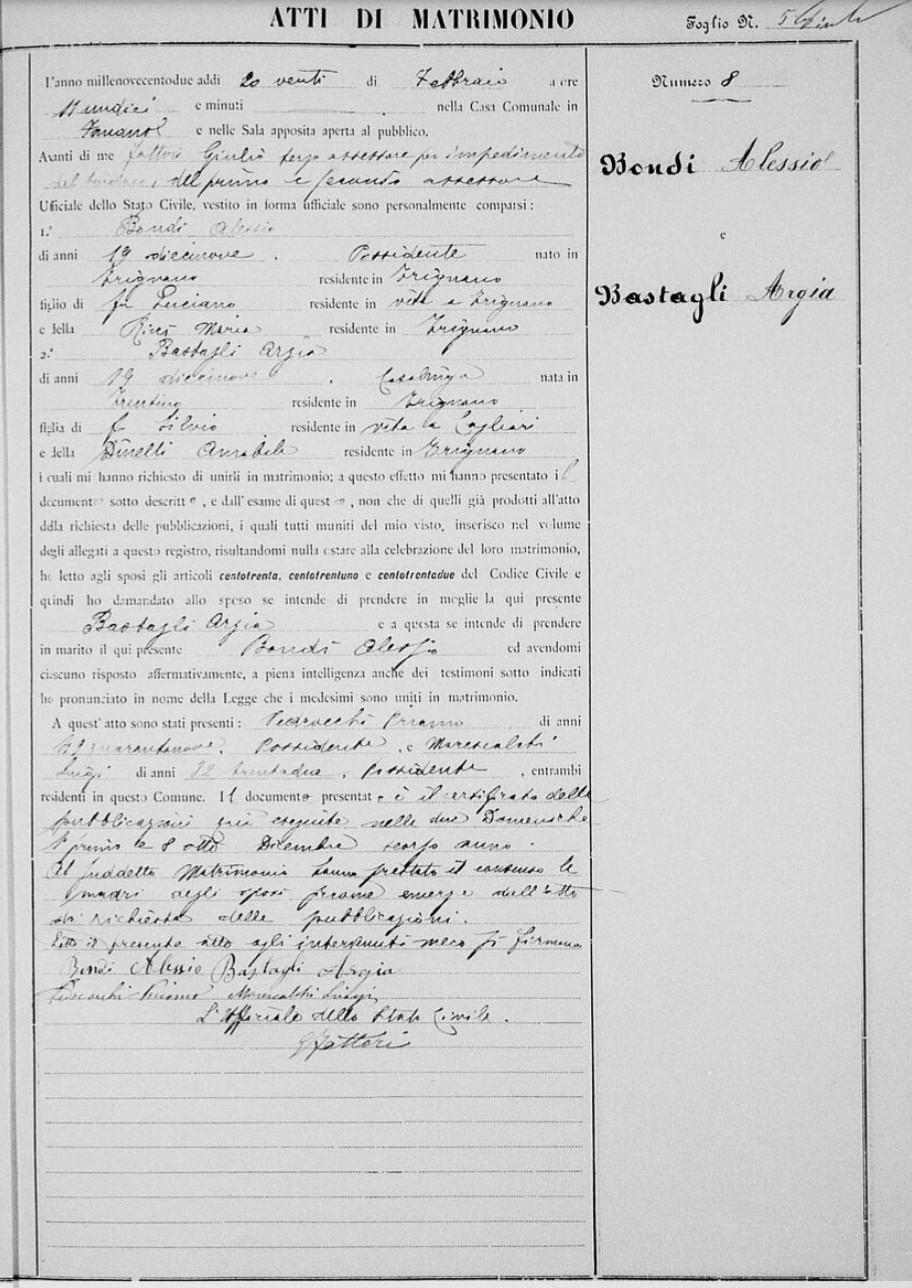 ATTI DI MATRIMONIO
Foglio N. 5
Numero 8
Bondi Alessio
e
Bastagli Argia
L'anno millenovecentodue addi 20 venti di Febbraio a ore
11 undici e minuti nella Casa Comunale in
Fanano e nelle Sala apposita aperta al pubblico.
Avanti di me Fattori Giulio terzo assessore per impedimento
del Sindaco, del primo e secondo assessore
Ufficiale dello Stato Civile, vestito in forma ufficiale sono personalmente comparsi:
1.° Bondi Alessio
di anni 19 diecinove. Possidente nato in
Trignano residente in Trignano
figlio di fu Luciano residente in vita a Trignano
e della Ricci Maria residente in Trignano
2.° Bastagli Argia
di anni 19 diecinove. Casalinga nata in
Trentino residente in Trignano
figlia di fu Silvio residente in vita a Cagliari
e della Dinelli Annabile residente in Trignano
i cuali mi hanno richiesto di unirli in matrimonio; a questo effetto mi hanno presentato il
documento sotto descritto, e dall'esame di questo, non che di quelli già prodotti all'atto
della richiesta delle pubblicazioni, i quali tutti muniti del mio visto, inserisco nel volume
degli allegati a questo registro, risultandomi nulla ostare alla celebrazione del loro matrimonio,
ho letto agli sposi gli articoli centotrenta, centotrentuno e centotrentadue del Codice Civile e
quindi ho domandato allo sposo se intende di prendere in moglie la qui presente
Bastagli Argia e a questa se intende di prendere
in marito il qui presente Bondi Alessio ed avendomi
ciascuno risposto affermativamente, a piena intelligenza anche dei testimoni sotto indicati
ho pronunciato in nome della Legge che i medesimi sono uniti in matrimonio.
A quest'atto sono stati presenti: Pedrocchi Priamo di anni
49 quarantanove, Possidente, e Marescalchi
Luigi di anni 32 trentadue, Possidente, entrambi
residenti in questo Comune. Il documento presentato è il certificato delle
pubblicazioni qui eseguite nelle due Domeniche
1° primo e 8 otto Dicembre scorso anno.
Al suddetto Matrimonio hanno prestato il consenso le
madri degli sposi siccome emerge dall'atto
di richiesta delle pubblicazioni.
Letto il presente atto agli intervenuti meco si firmano
Bondi Alessio Bastagli Argia
Pedrocchi Priamo Marescalchi Luigi
L'Ufficiale dello Stato Civile.
G Fattori